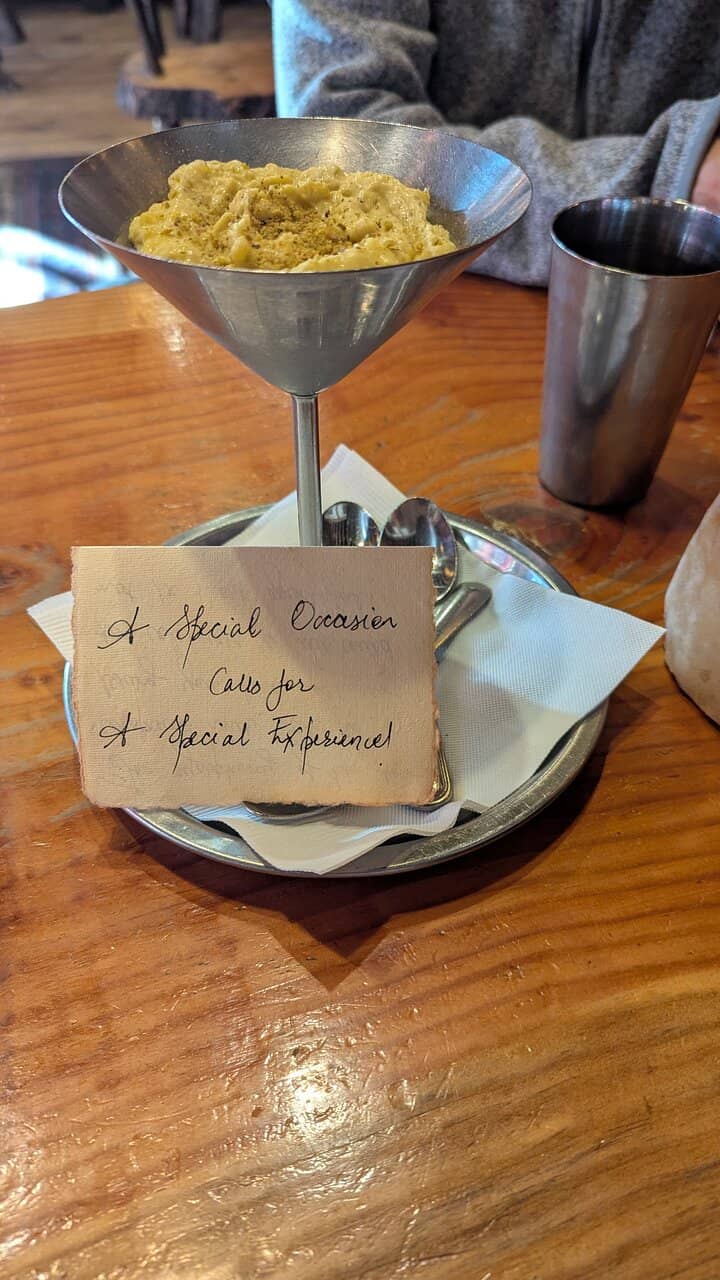 A Special Occasion
Calls for
A Special Experience!